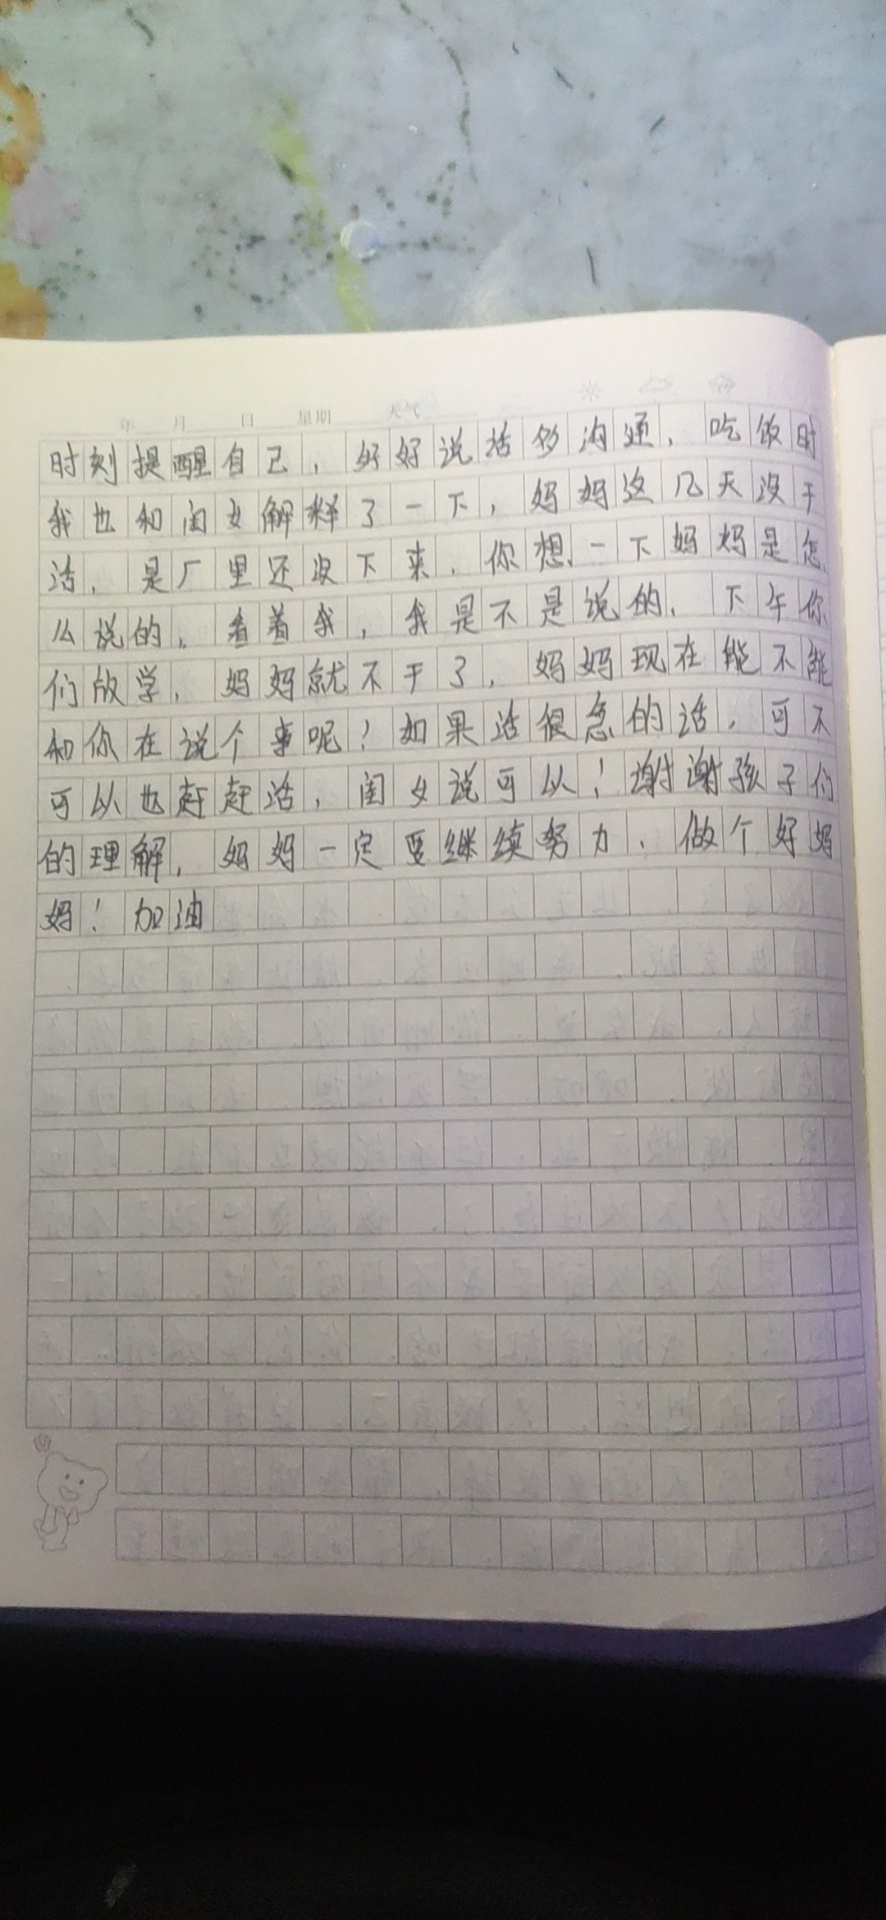 年 月 日 星期 天气
时刻提醒自己，好好说话多沟通，吃饭时
我也和闺女解释了一下，妈妈这几天没干
活，是厂里还没下来，你想一下妈妈是怎
么说的，看着我，我是不是说的，下午你
们放学，妈妈就不干了，妈妈现在能不能
和你在说个事呢！如果活很急的话，可不
可以也赶赶活，闺女说可以！谢谢孩子们
的理解，妈妈一定要继续努力，做个好妈
妈！加油